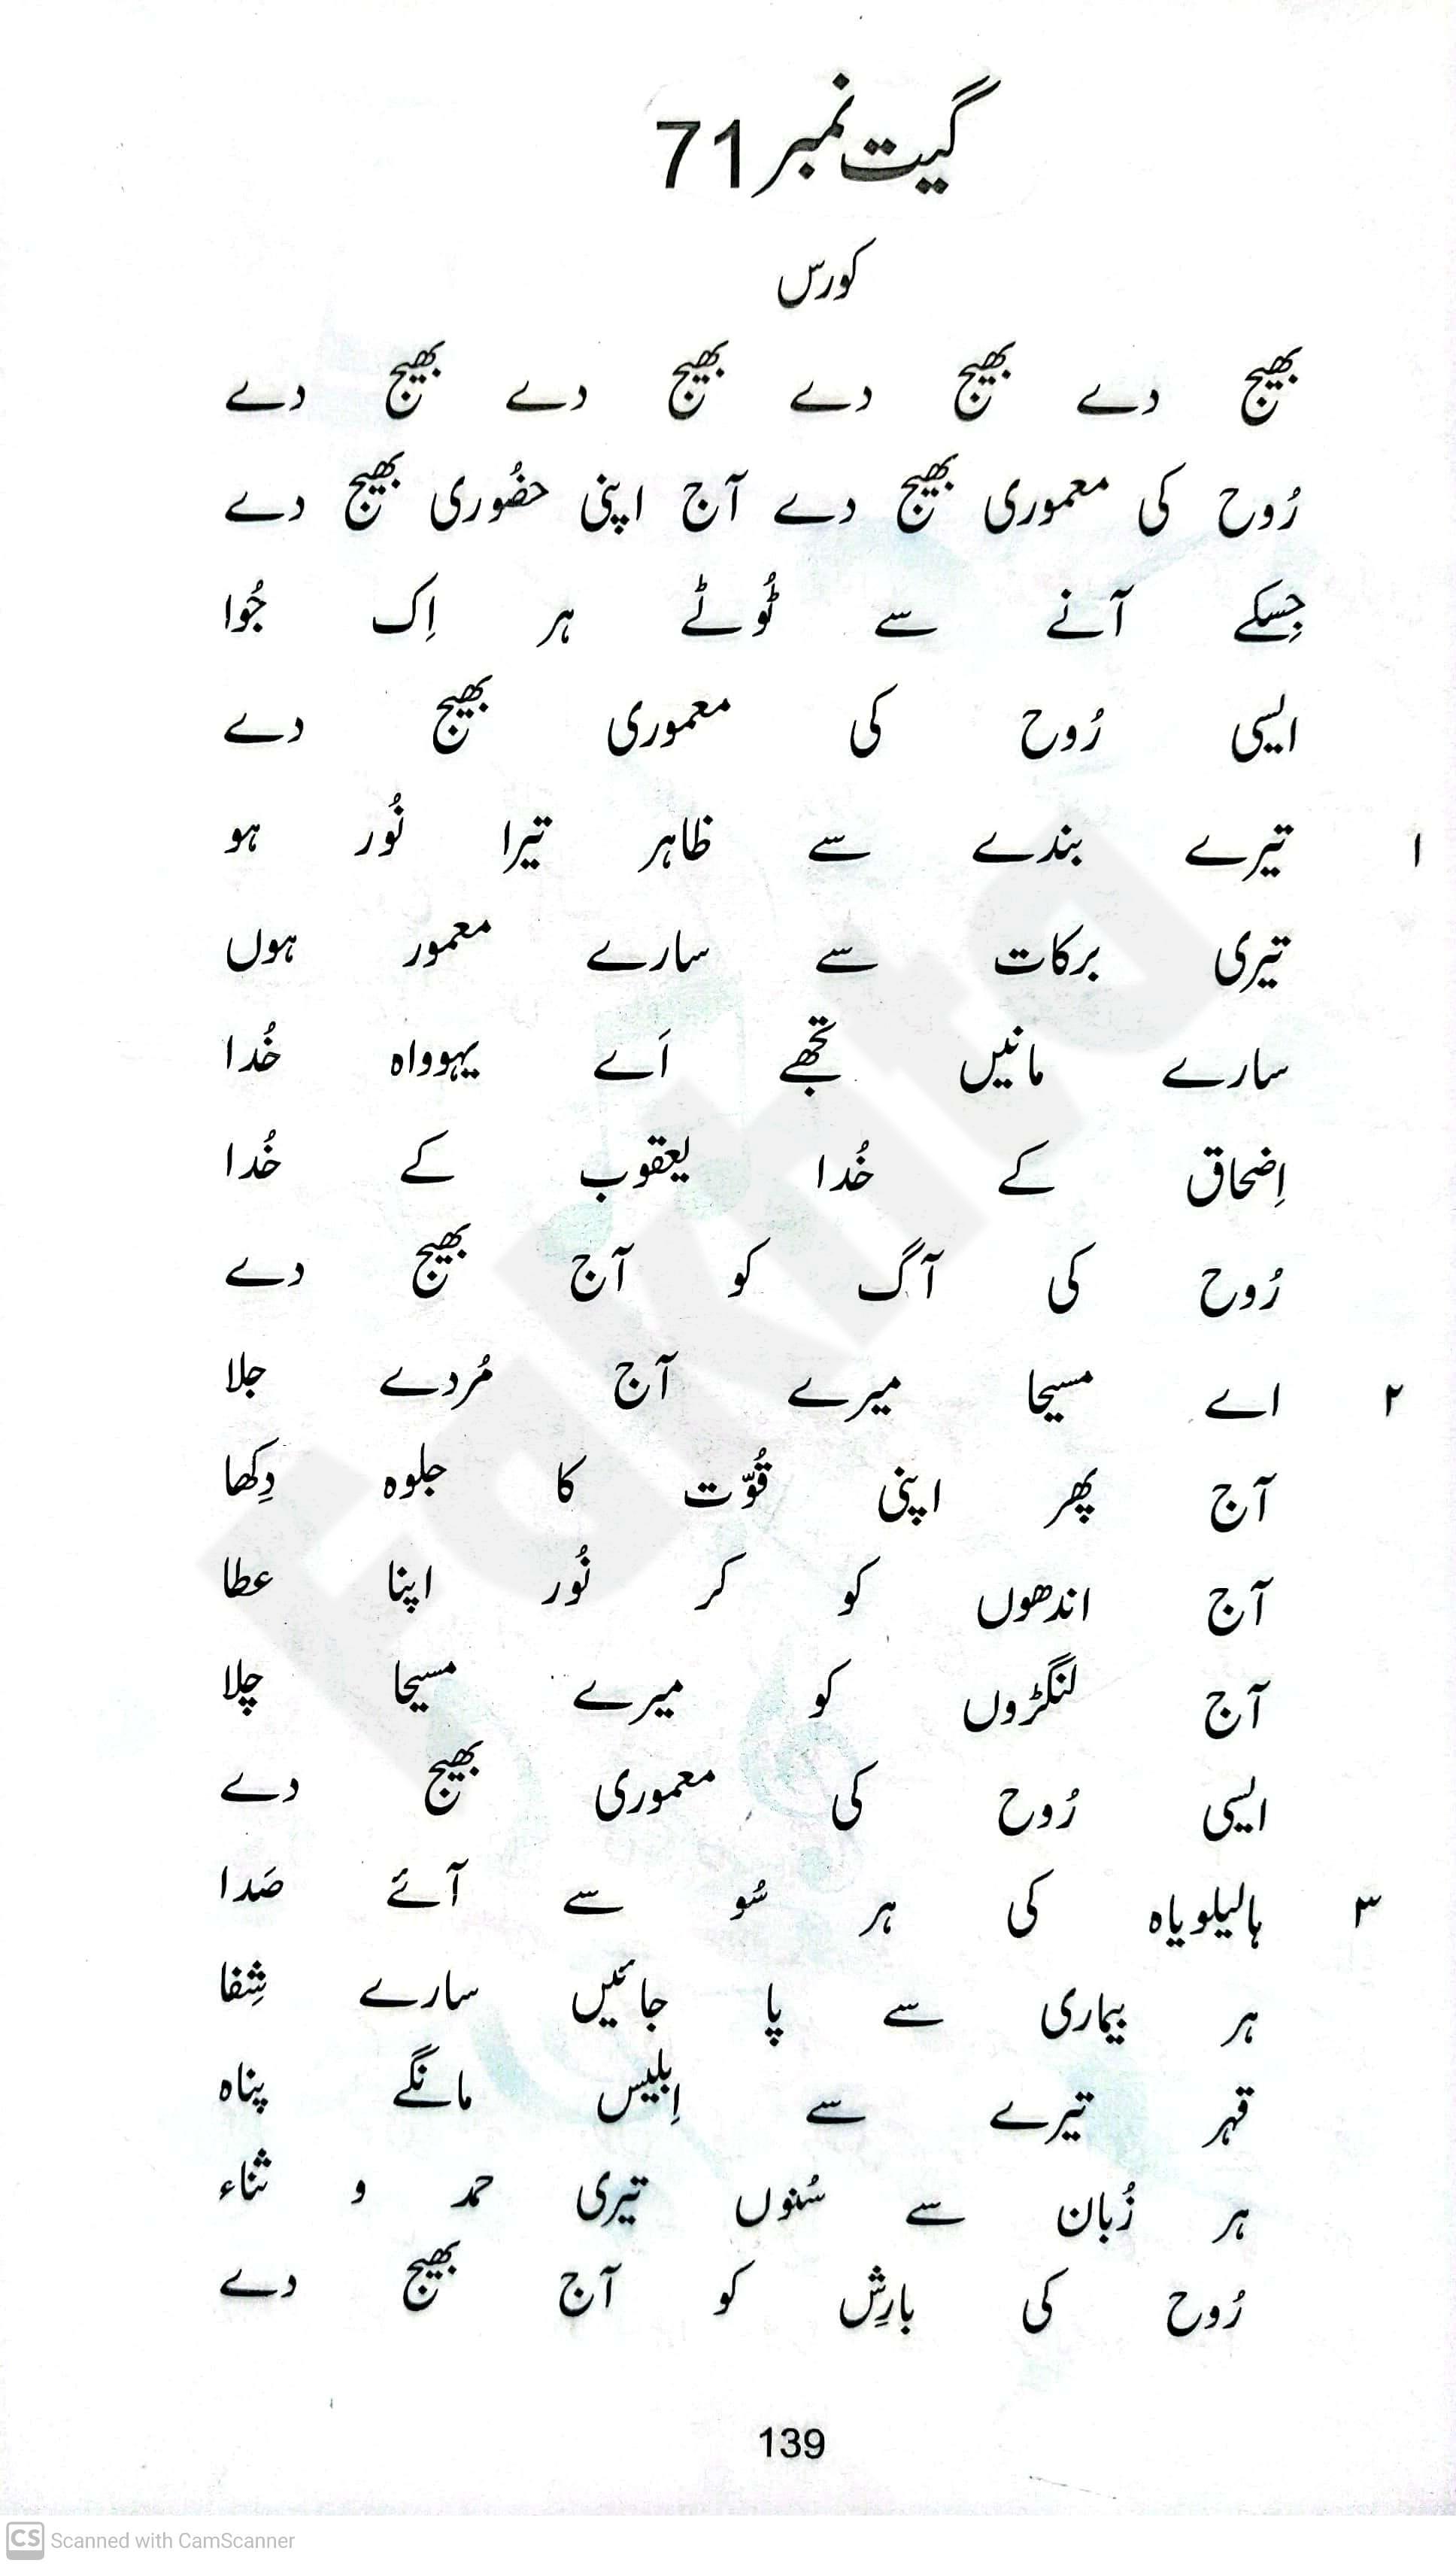 گیت نمبر 71
کورس
بھیج دے بھیج دے بھیج دے بھیج دے
رُوح کی معموری بھیج دے آج اپنی حضُوری بھیج دے
جِسکے آنے سے ٹُوٹے ہر اِک جُوا
ایسی رُوح کی معموری بھیج دے
۱ تیرے بندے سے ظاہر تیرا نُور ہو
تیری برکات سے سارے معمور ہوں
سارے مانیں تجھے اَے یہوواہ خُدا
اِضحاق کے خُدا یعقوب کے خُدا
رُوح کی آگ کو آج بھیج دے
۲ اے مسیحا میرے آج مُردے جلا
آج پھر اپنی قُوّت کا جلوہ دِکھا
آج اندھوں کو کر نُور اپنا عطا
آج لنگڑوں کو میرے مسیحا چلا
ایسی رُوح کی معموری بھیج دے
۳ ہالیلویاہ کی ہر سُو سے آئے صَدا
ہر بیماری سے پا جائیں سارے شِفا
قہر تیرے سے اِبلیس مانگے پناہ
ہر زُبان سے سُنوں تیری حمد و ثناء
رُوح کی بارِش کو آج بھیج دے
139
Fakhta
CS Scanned with CamScanner